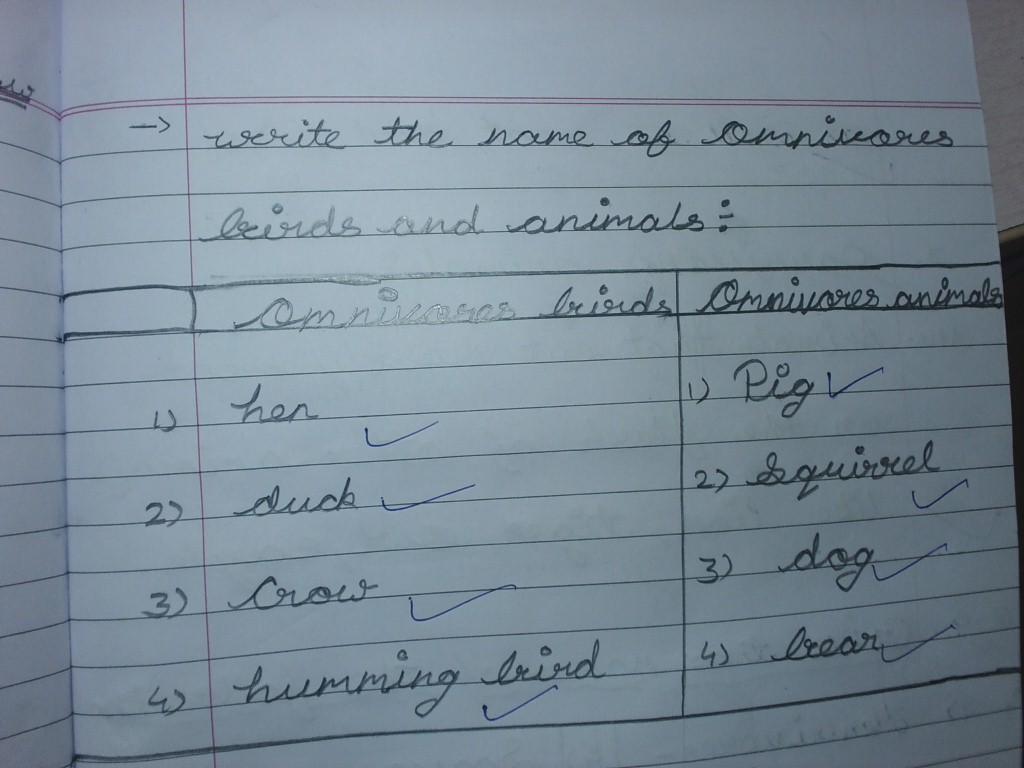 → write the name of omnivores
birds and animals:
Omnivores birds Omnivores animals
1) hen 1) Pig
2) duck 2) Squirrel
3) Crow 3) dog
4) humming bird 4) bear